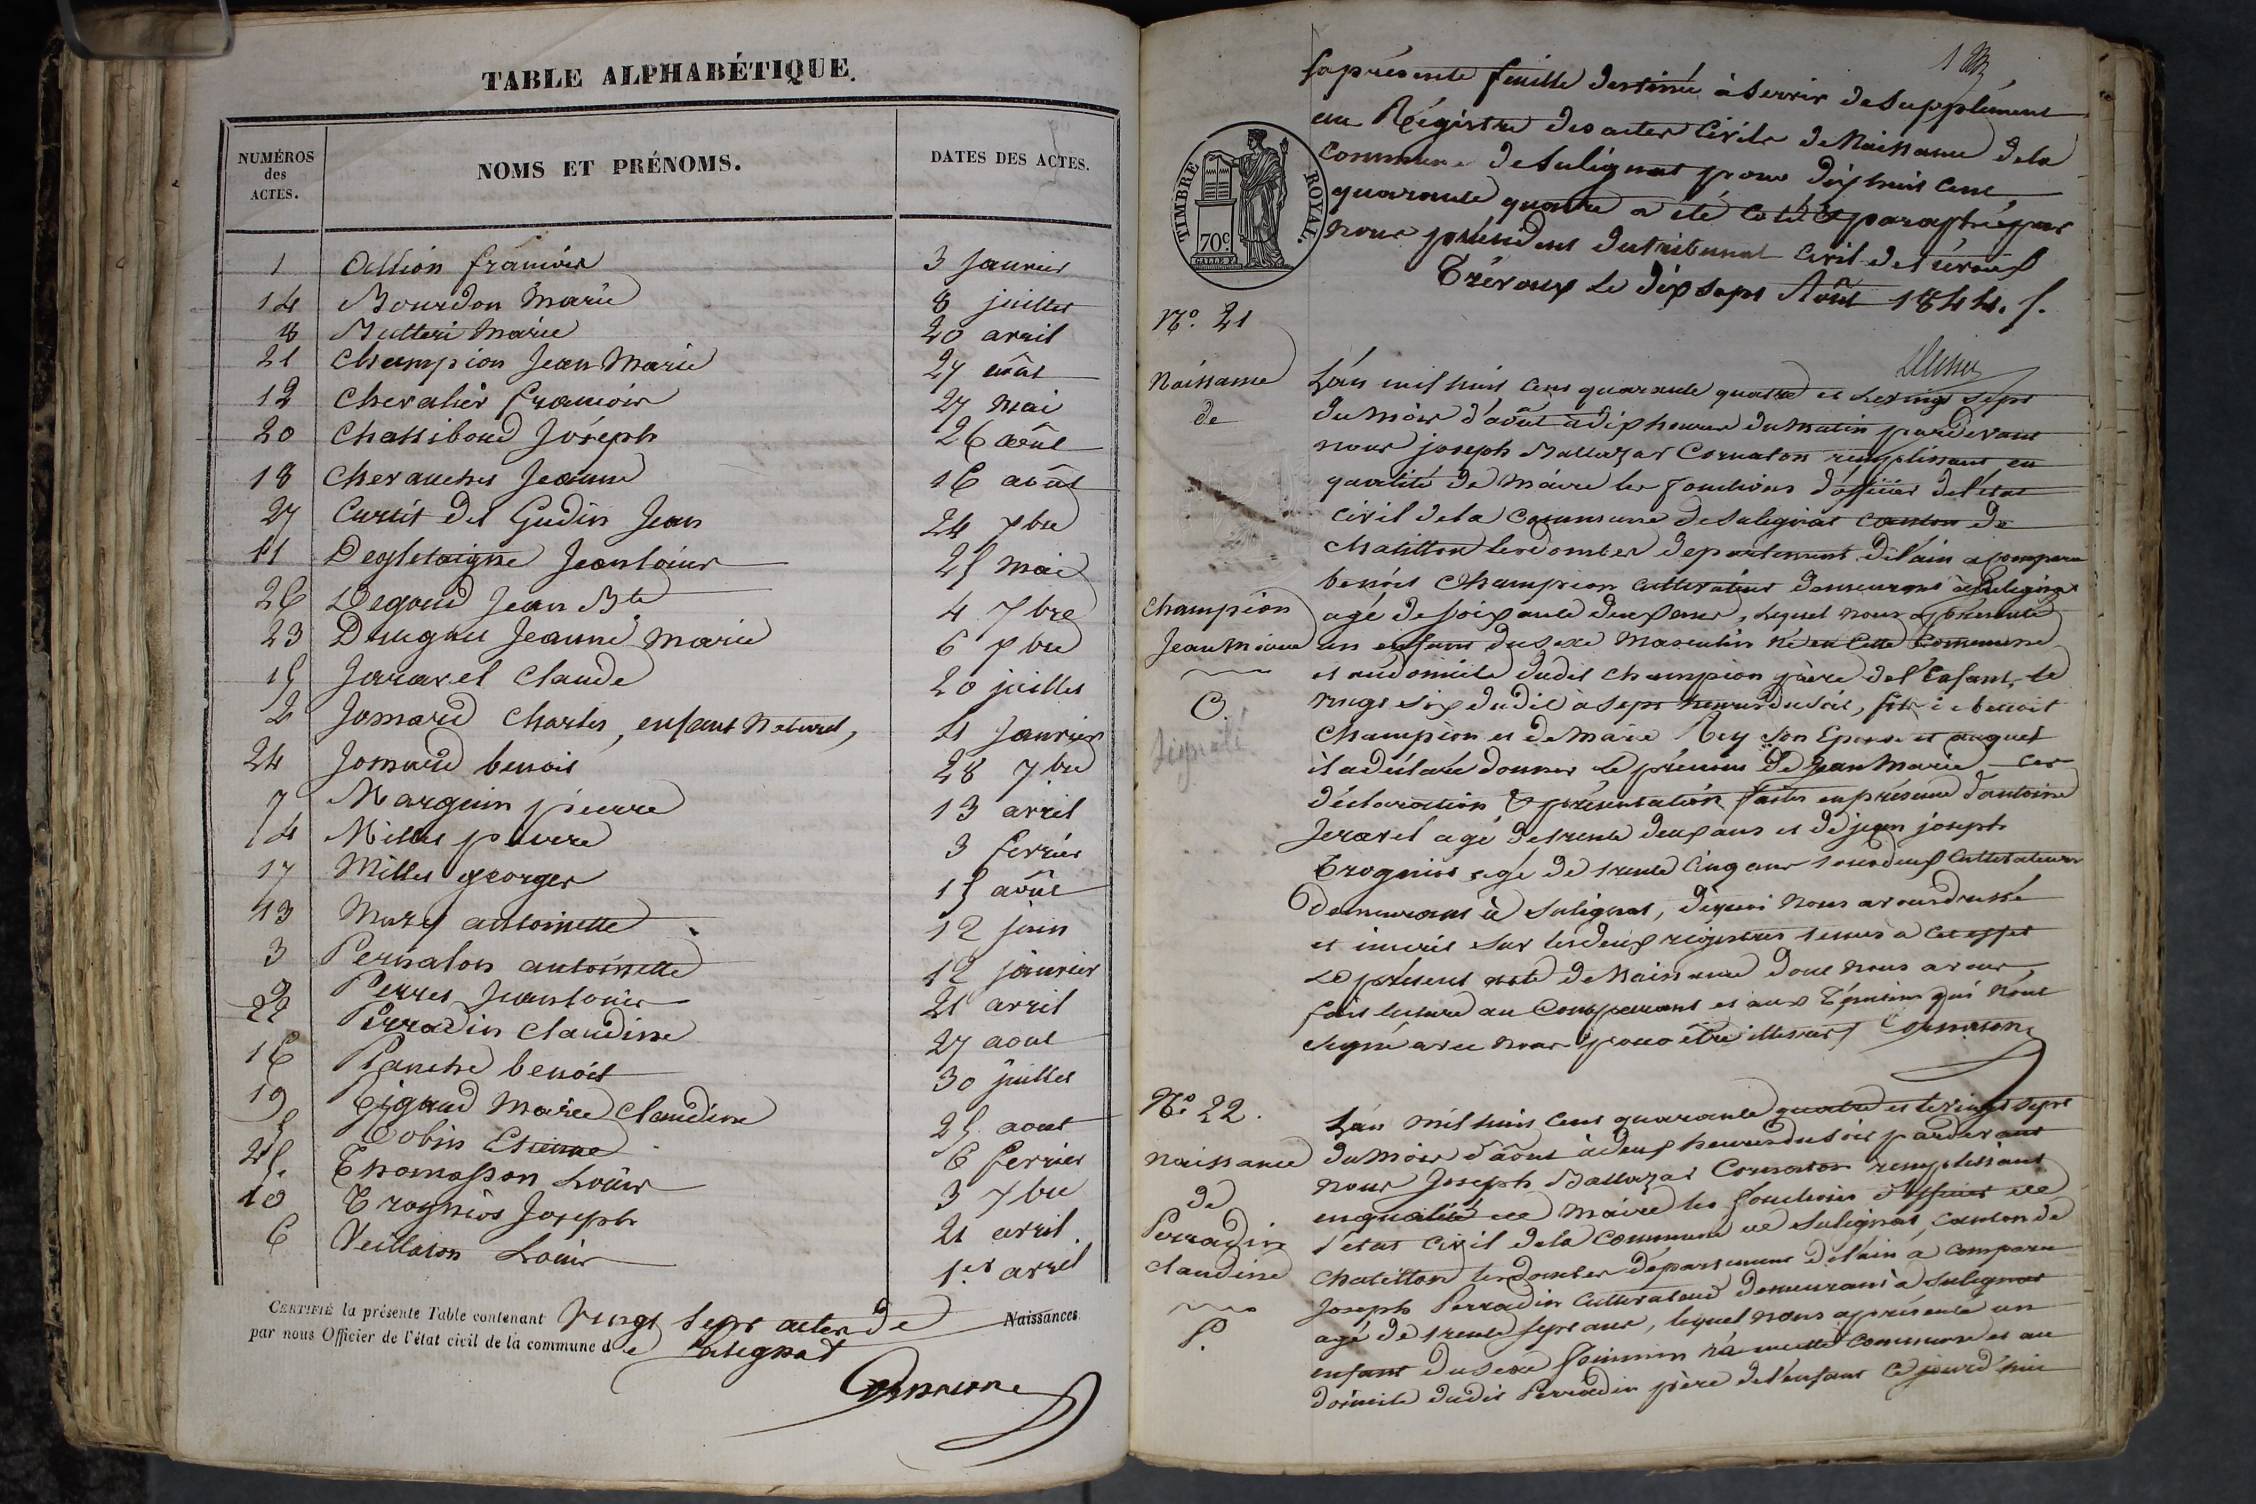 TABLE ALPHABÉTIQUE.
NUMÉROS des ACTES.
NOMS ET PRÉNOMS.
DATES DES ACTES.
1 françois 3 Janvier
14 Bourdon Marie 8 juillet
8 Marie 20 avril
21 Champion Jean Marie 27 août
12 Chevalier françois 27 mai
20 Chassiboud Joseph 26 août
18 Jeanne 16 août
27 Curtit del Gudin Jean 24 7bre
11 Jean louis 25 mai
26 Degoud Jean Bte 4 7bre
23 Jeanne Marie 6 7bre
15 Jararel Claude 20 juillet
2 Jomard Charles, enfant Naturel, Janvier
24 Jomard benoit 28 7bre
7 Marguin pierre 13 avril
4 Millet pierre 3 fevrier
17 Millet georges 15 août
13 antoinette 12 juin
3 antoinette 12 janvier
9 Perret Jean louis 21 avril
22 Perradin Claudine 27 aout
16 Planche benoit 30 juillet
19 Rigaud Marie Claudine 25 aout
5 Robin Etienne 6 fevrier
25. Thomasson Louis 3 7bre
10 Trogniot Joseph 21 avril.
6 Veillaton Louis 1er avril
CERTIFIÉ la présente Table contenant vingt sept actes de Naissances
par nous Officier de l'état civil de la commune de Sulignat
Cornaton
La présente feuille destinée à servir de supplément
au Régistre des actes Civils de Naissance de la
commune de Sulignat pour dix huit cent
quarante quatre a été coté & paraphé par
nous président du tribunal Civil de Trévoux
Trévoux le dix sept Août 1844. /.
TIMBRE ROYAL.
70c
No. 21
Naissance
de
Champion
Jean Marie
L'an mil huit cent quarante quatre et le vingt sept
du Mois d'août à dix heures du matin pardevant
nous joseph Baltazar Cornaton remplissant en
qualité de Maire les fonctions d'officier de l'état
civil de la Commune de Sulignat canton de
Chatillon les dombes departement de l'ain a comparu
benoit Champion cultivateur demeurant à Sulignat
agé de soixante deux ans, lequel nous a présenté
un enfant du sexe Masculin né en cette Commune
et au domicile dudit Champion père de l'Enfant, le
vingt six dudit à sept heures du soir, fils de benoit
Champion et de Marie Rey son Epouse et auquel
il a déclaré donner le prénom de Jean Marie Ces
déclaration & présentation faites en présence d'antoine
Jeravel agé de trente deux ans et de jean joseph
Trogniot agé de trente cinq ans tous deux Cultivateurs
demeurant à Sulignat, dequoi nous avons dressé
et inscrit sur les deux régistres tenus a cet effet
Le présent acte de Naissance dont nous avons
fait lecture au Comparant et aux Témoins qui n'ont
signé avec nous pour être illeteré / Cornaton
No. 22.
naissance
de
Perradin
claudine
L'an mil huit cent quarante quatre et le vingt sept
du Mois d'août à deux heures du soir pardevant
nous Joseph Baltazar Cornaton remplissant
en qualité de Maire les fonctions d'officier de
l'état civil de la Commune de Sulignat, canton de
Chatillon les dombes département de l'ain a comparu
Joseph Perradin Cultivateur demeurant à Sulignat
agé de trente sept ans, lequel nous a présenté un
enfant du sexe féminin né en cette Commune et au
domicile dudit Perradin père de l'enfant ce jourd'hui